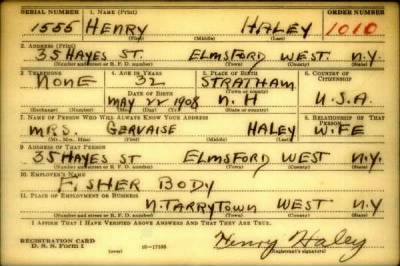 SERIAL NUMBER 1. NAME (Print) ORDER NUMBER
1555 HENRY HALEY 1010
(First) (Middle) (Last)
2. ADDRESS (Print)
35 HAYES ST. ELMSFORD WEST. N.Y.
(Number and street or R. F. D. number) (Town) (County) (State)
3. TELEPHONE 4. AGE IN YEARS 5. PLACE OF BIRTH 6. COUNTRY OF CITIZENSHIP
NONE 32 STRATHAM
DATE OF BIRTH (Town or county)
MAY 22 1908 N. H U.S.A.
(Exchange) (Number) (Mo.) (Day) (Yr.) (State or country)
7. NAME OF PERSON WHO WILL ALWAYS KNOW YOUR ADDRESS 8. RELATIONSHIP OF THAT PERSON
MRS. GERVAISE HALEY WIFE
(Mr., Mrs., Miss) (First) (Middle) (Last)
9. ADDRESS OF THAT PERSON
35 HAYES ST ELMSFORD WEST N.Y.
(Number and street or R. F. D. number) (Town) (County) (State)
10. EMPLOYER'S NAME
FISHER BODY
11. PLACE OF EMPLOYMENT OR BUSINESS
N. TARRYTOWN WEST N.Y.
(Number and street or R. F. D. number) (Town) (County) (State)
I AFFIRM THAT I HAVE VERIFIED ABOVE ANSWERS AND THAT THEY ARE TRUE.
REGISTRATION CARD
D. S. S. FORM 1 Henry Haley
(over) (Registrant's signature)